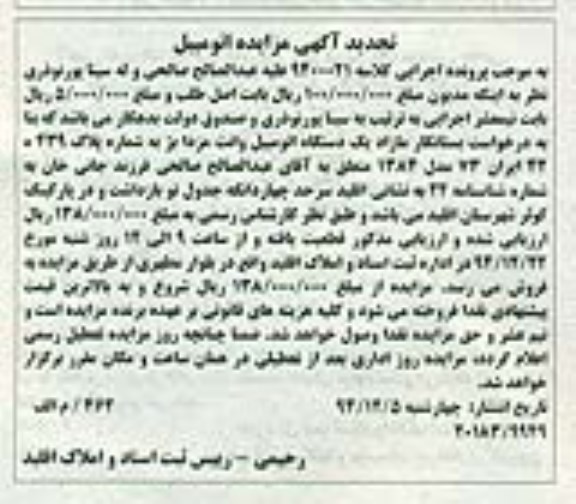 تجدید آگهی مزایده اتومبیل
به موجب پرونده اجرایی کلاسه ۹۴۰۰۰۲۱ علیه عبدالصالح صالحی و له سینا پورنوذری
نظر به اینکه مدیون مبلغ ۱۰۰/۰۰۰/۰۰۰ ریال بابت اصل طلب و مبلغ ۵/۰۰۰/۰۰۰ ریال
بابت نیمعشر اجرایی به ترتیب به سینا پورنوذری و صندوق دولت بدهکار می باشد که بنا
به درخواست بستانکار مازاد یک دستگاه اتومبیل وانت مزدا به شماره پلاک ۲۳۹
ایران ۷۳ مدل ۱۳۸۴ متعلق به آقای عبدالصالح صالحی فرزند جانی خان به
شماره شناسنامه ۲۲ به نشانی اقلید سرحد چهاردانگه جدول نو بازداشت و در پارکینگ
کوثر شهرستان اقلید می باشد و طبق نظر کارشناس رسمی به مبلغ ۱۳۸/۰۰۰/۰۰۰ ریال
ارزیابی شده و ارزیابی مذکور قطعیت یافته و از ساعت ۹ الی ۱۲ روز شنبه مورخ
۹۴/۱۲/۲۲ در اداره ثبت اسناد و املاک اقلید واقع در بلوار مطهری از طریق مزایده به
فروش می رسد. مزایده از مبلغ ۱۳۸/۰۰۰/۰۰۰ ریال شروع و به بالاترین قیمت
پیشنهادی نقدا فروخته می شود و کلیه هزینه های قانونی بر عهده برنده مزایده است و
نیم عشر و حق مزایده نقدا وصول خواهد شد. ضمنا چنانچه روز مزایده تعطیل رسمی
اعلام گردد، مزایده روز اداری بعد از تعطیلی در همان ساعت و مکان مقرر برگزار
خواهد شد.
تاریخ انتشار: چهارشنبه ۹۴/۱۲/۵ ۴۶۲ / م الف
۲۰۱۸۳/۹۹۲۹
رحیمی - رییس ثبت اسناد و املاک اقلید